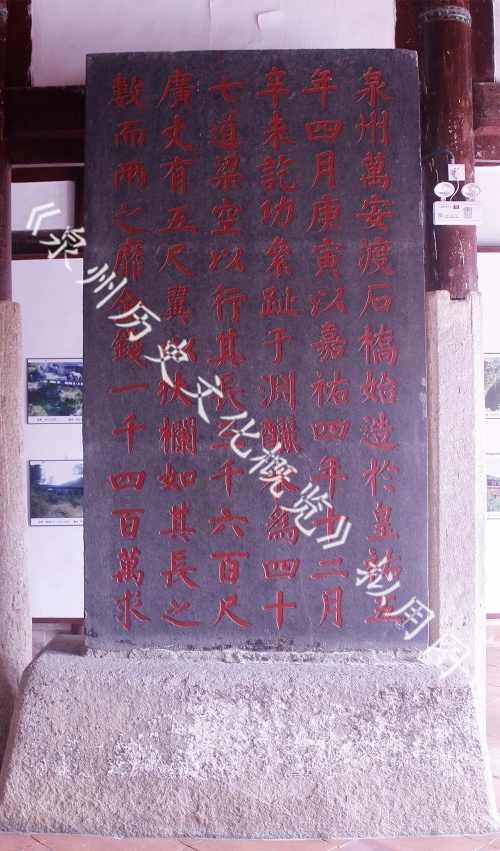 泉州萬安渡石橋始造於皇祐五
年四月庚寅以嘉祐四年十二月
辛未訖功絫趾于渊釃水為四十
七道梁空以行其長三千六百尺
廣丈有五尺翼以扶欄如其長之
數而兩之靡金錢一千四百萬求
《泉州历史文化概览》彩用图